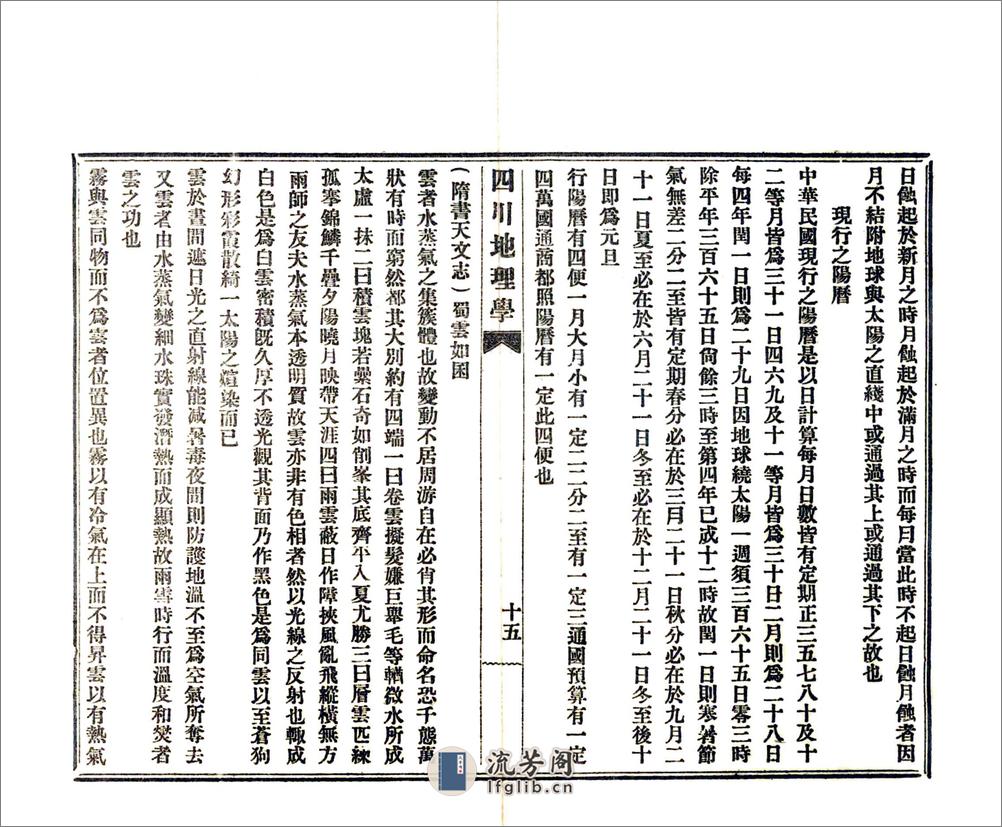 日蝕起於新月之時月蝕起於滿月之時而每日當此時不起日蝕月蝕者因
月不結附地球與太陽之直綫中或通過其上或通過其下之故也
現行之陽曆
中華民國現行之陽曆是以日計算每月日數皆有定期正三五七八十及十
二等月皆爲三十一日四六九及十一等月皆爲三十日二月則爲二十八日
每四年閏一日則爲二十九日因地球繞太陽一週須三百六十五日零三時
除平年三百六十五日尙餘三時至第四年已成十二時故閏一日則寒暑節
氣無差二分二至皆有定期春分必在於三月二十一日秋分必在於九月二
十一日夏至必在於六月二十一日冬至必在於十二月二十一日冬至後十
日即爲元旦
行陽曆有四便一月大月小有一定二二分二至有一定三通國預算有一定
四萬國通商都照陽曆有一定此四便也
四川地理學
十五
(隋書天文志)蜀雲如囷
雲者水蒸氣之集簇體也故變動不居周游自在必肖其形而命名恐千態萬
狀有時而窮然都其大別約有四端一曰卷雲擬髮嫌巨舉毛等輶微水所成
太虛一抹二曰積雲塊若纍石奇如削峯其底齊平入夏尤勝三曰層雲匹練
孤搴錦鱗千疊夕陽曉月映帶天涯四曰雨雲蔽日作障挾風亂飛縱橫無方
雨師之友夫水蒸氣本透明質故雲亦非有色相者然以光線之反射也輙成
白色是爲白雲密積旣久厚不透光觀其背面乃作黑色是爲同雲以至蒼狗
幻形彩霞散綺一太陽之煊染而已
雲於晝間遮日光之直射線能減暑毒夜間則防護地溫不至爲空氣所奪去
又雲者由水蒸氣變細水珠實發潛熱而成顯熱故雨雪時行而溫度和煑者
雲之功也
霧與雲同物而不爲雲者位置異也霧以有冷氣在上而不得昇雲以有熱氣
流芳阁
lfglib.cn